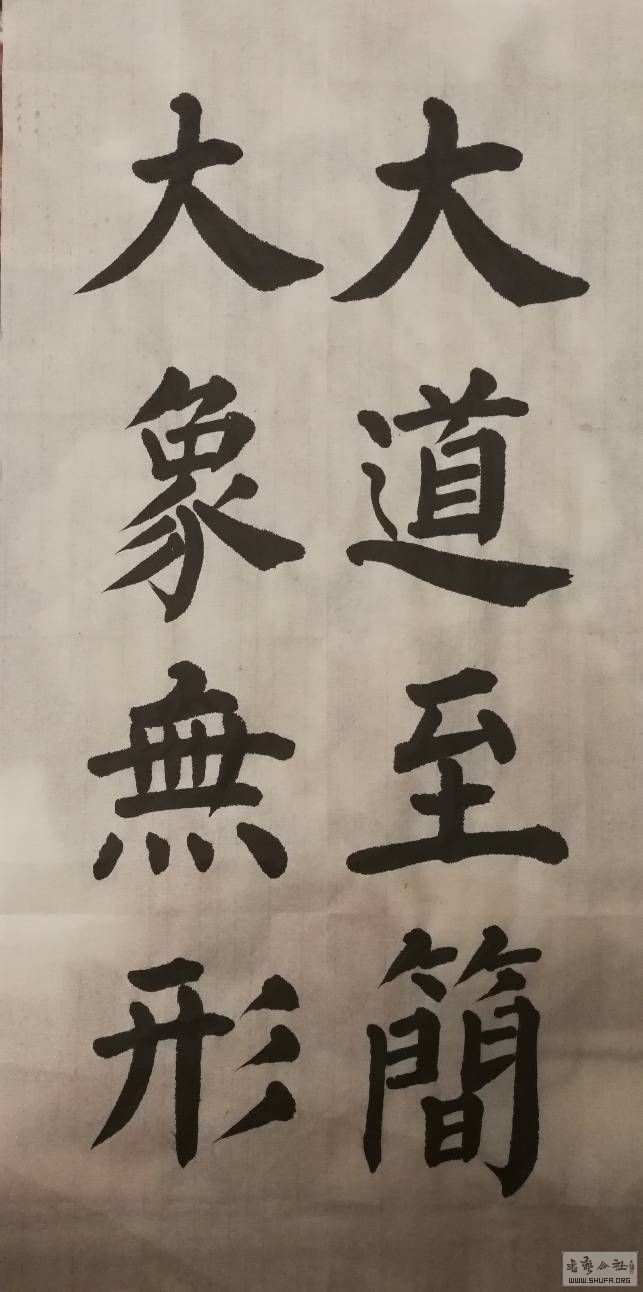 大道至簡
大象無形
書藝公社
WWW.SHUFA.ORG